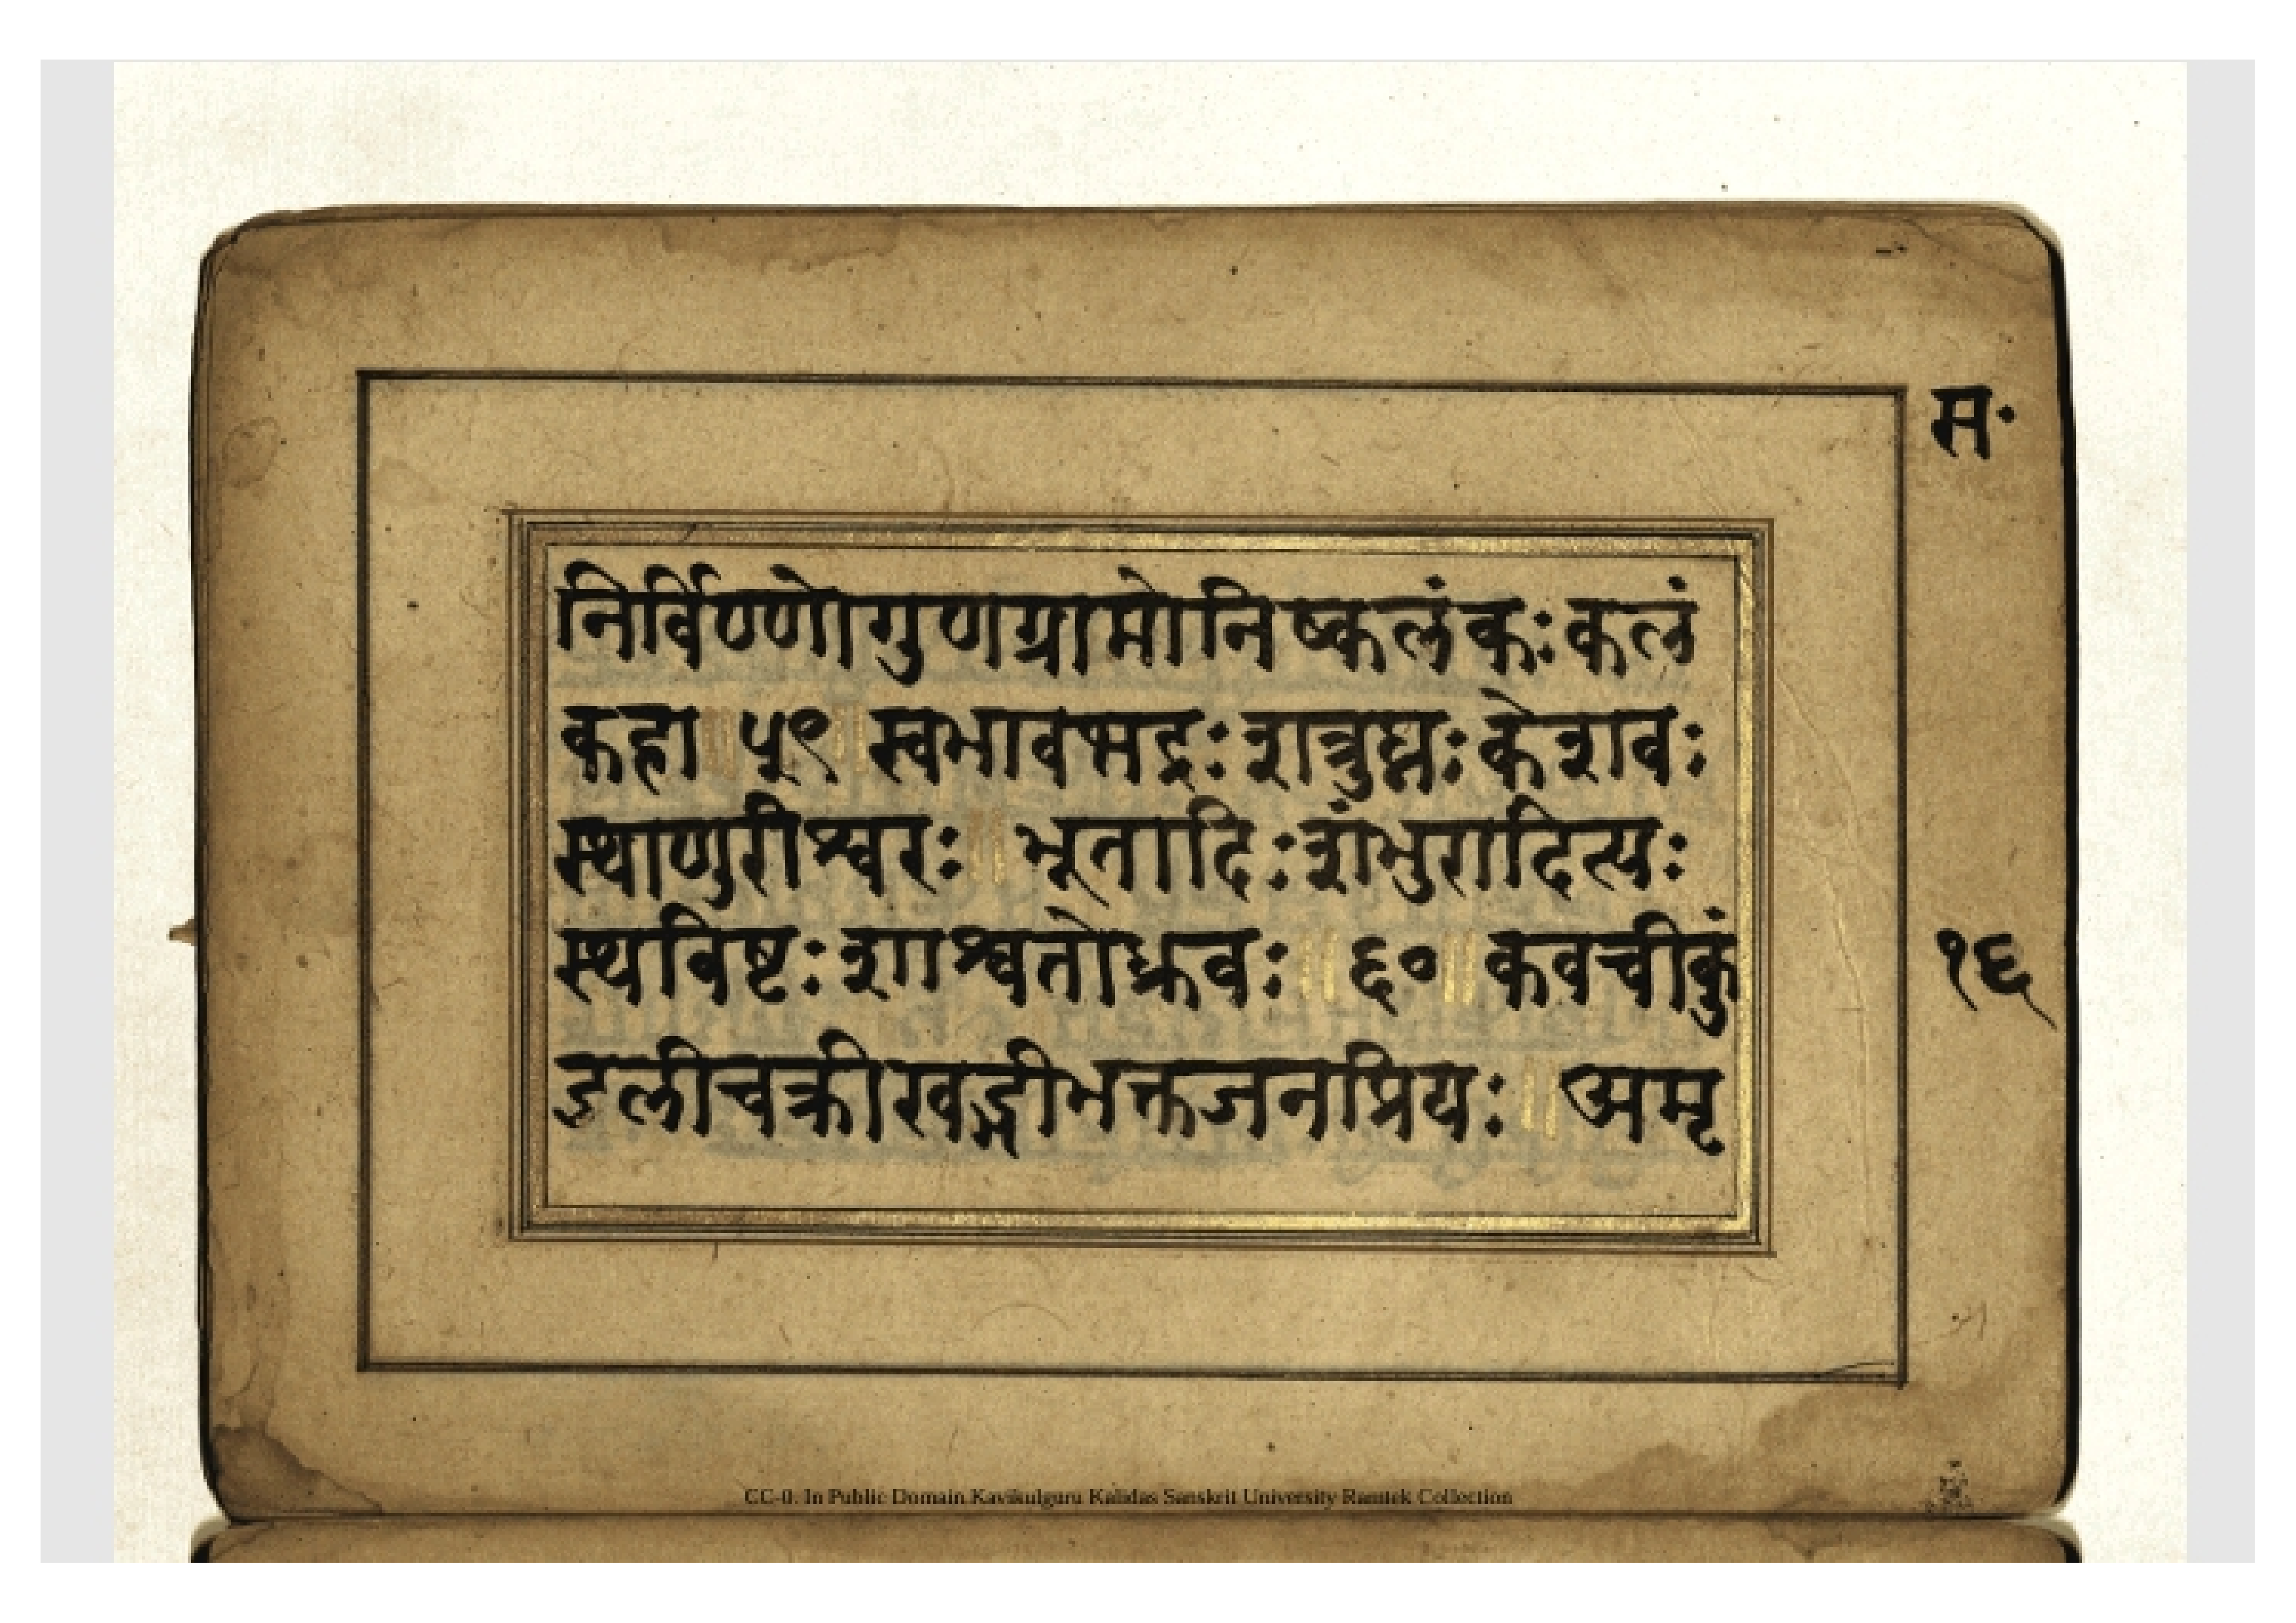 स·
निर्विण्णोगुणग्रामोनिष्कलंकःकलं
कहा ॥ ५९ ॥ स्वभावभद्रःशत्रुघ्नःकेशवः
स्थाणुरीश्वरः ॥ भूतादिःशंभुरादित्यः
स्थविष्टःशाश्वतोध्रुवः ॥ ६० ॥ कवचीकुं
डलीचक्रीखड्गीभक्तजनप्रियः ॥ अमृ
१६
CC-0. In Public Domain.Kavikulguru Kalidas Sanskrit University Ramtek Collection